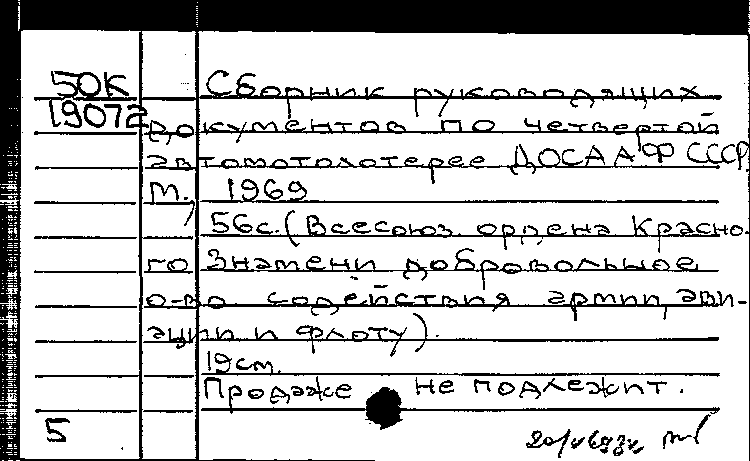 50К Сборник руководящих
19072 документов по четвертой
автомотолотерее ДОСААФ СССР.
М., 1969
56с. (Всесоюз. ордена Красно-
го Знамени добровольное
о-во содействия армии, ави-
ации и флоту).
19см.
Продаже не подлежит.
5